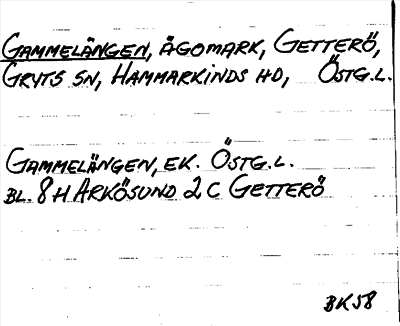 GAMMELÄNGEN, ÄGOMARK, GETTERÖ,
GRYTS SN, HAMMARKINDS HD, ÖSTG.L.
GAMMELÄNGEN, EK. ÖSTG.L.
BL. 8 H ARKÖSUND 2 C GETTERÖ
BK58